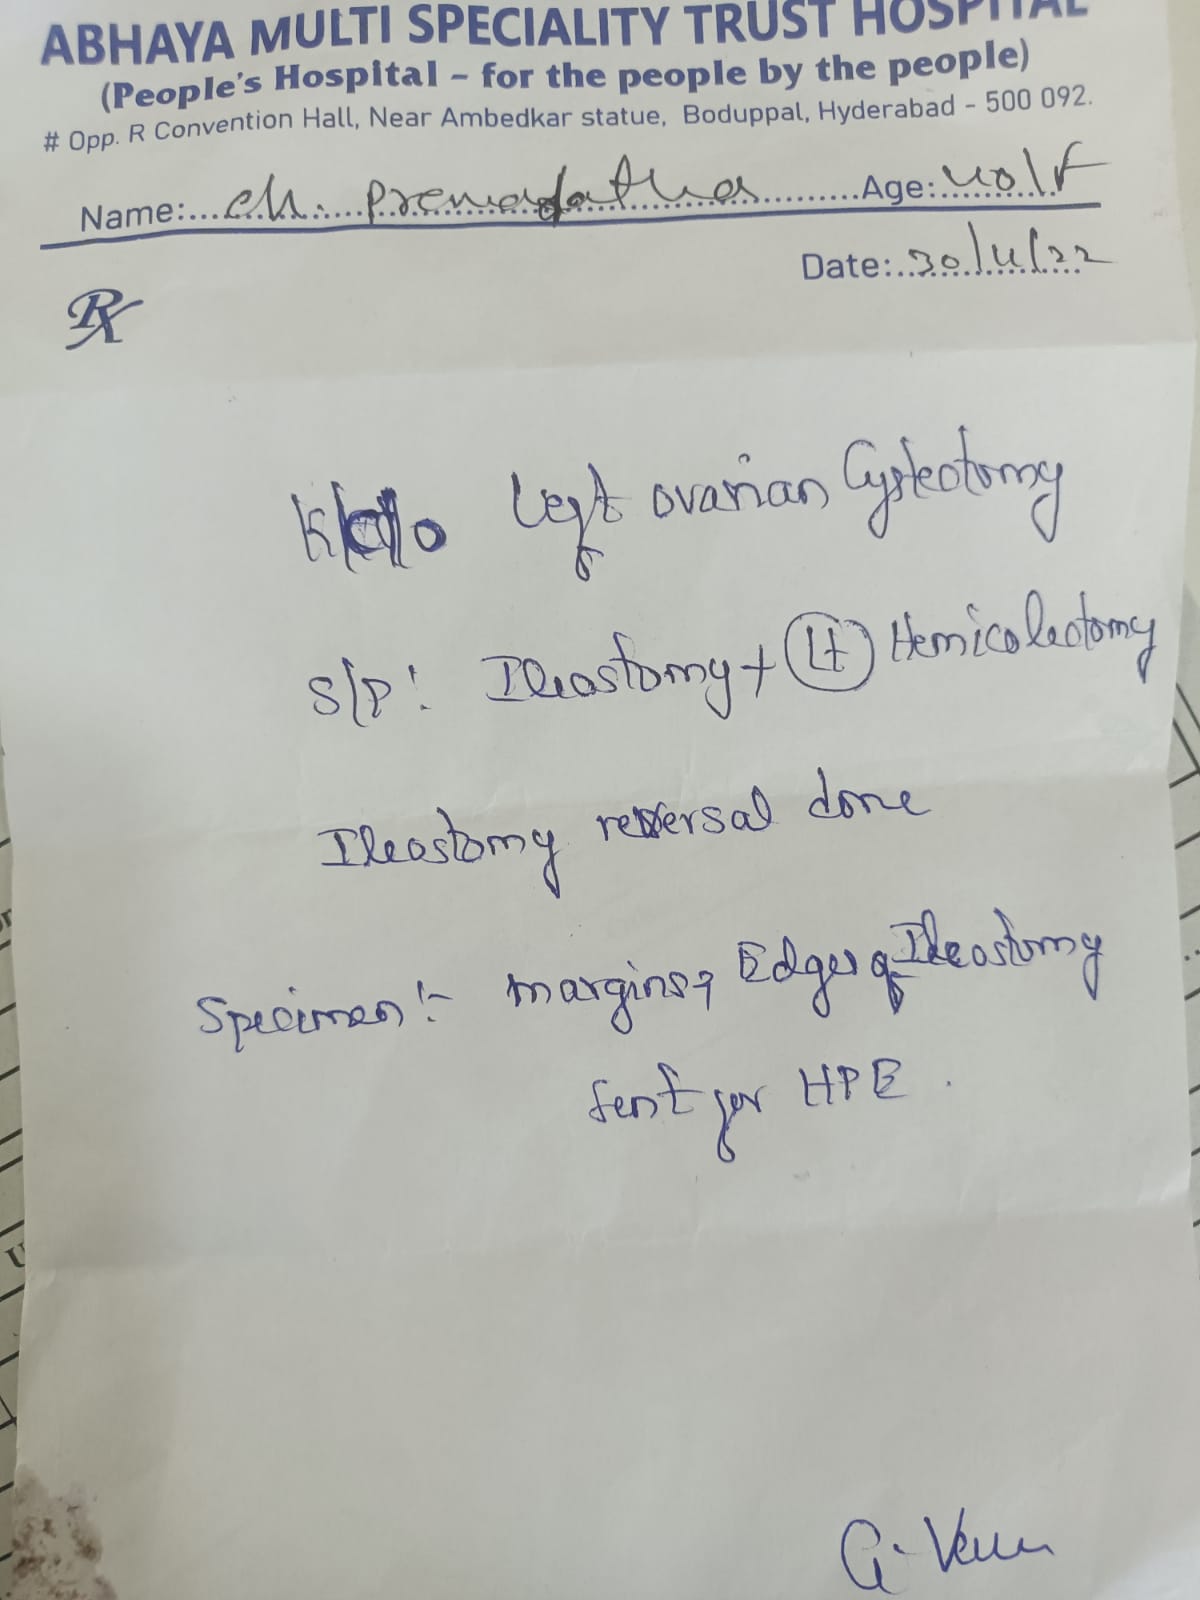 ABHAYA MULTI SPECIALITY TRUST HOSPITAL
(People's Hospital - for the people by the people)
# Opp. R Convention Hall, Near Ambedkar statue, Boduppal, Hyderabad - 500 092.
Name:...ch. Premalatha.........Age:..40/F
Date:..30/4/22
Rx
K/c/o Left ovarian Cystectomy
S/P: Ileostomy + (Lt) Hemicolectomy
Ileostomy reversal done
Specimen:- margins, Edges of Ileostomy
sent for HPE.
G.